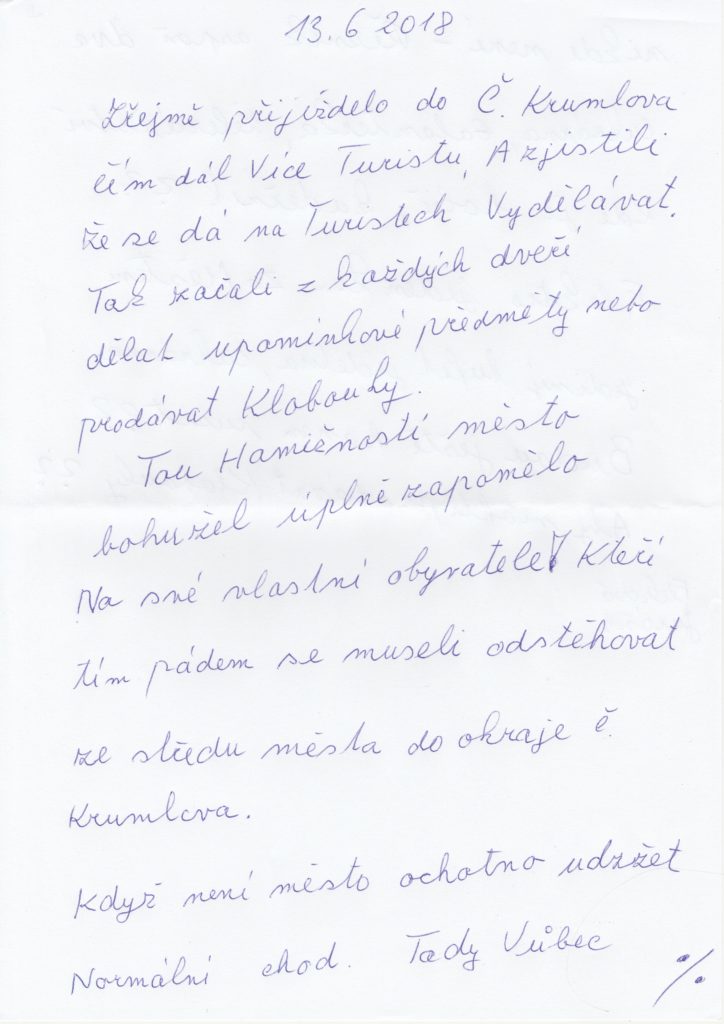 13.6 2018
Zřejmě přijíždelo do Č. Krumlova
čím dál Více Turistu, A zjistili
že se dá na Turistech Vydělávat.
Tak začali z každých dveří
dělat upomínkové předměty nebo
prodávat Klobouky.
Tou Hamičností město
bohužel úplně zapomělo
Na své vlastní obyvatele! Kteří
tím pádem se museli odstěhovat
ze středu města do okraje č.
Krumlova.
Když není město ochotno udržet
Normální chod. Tady Vůbec
%